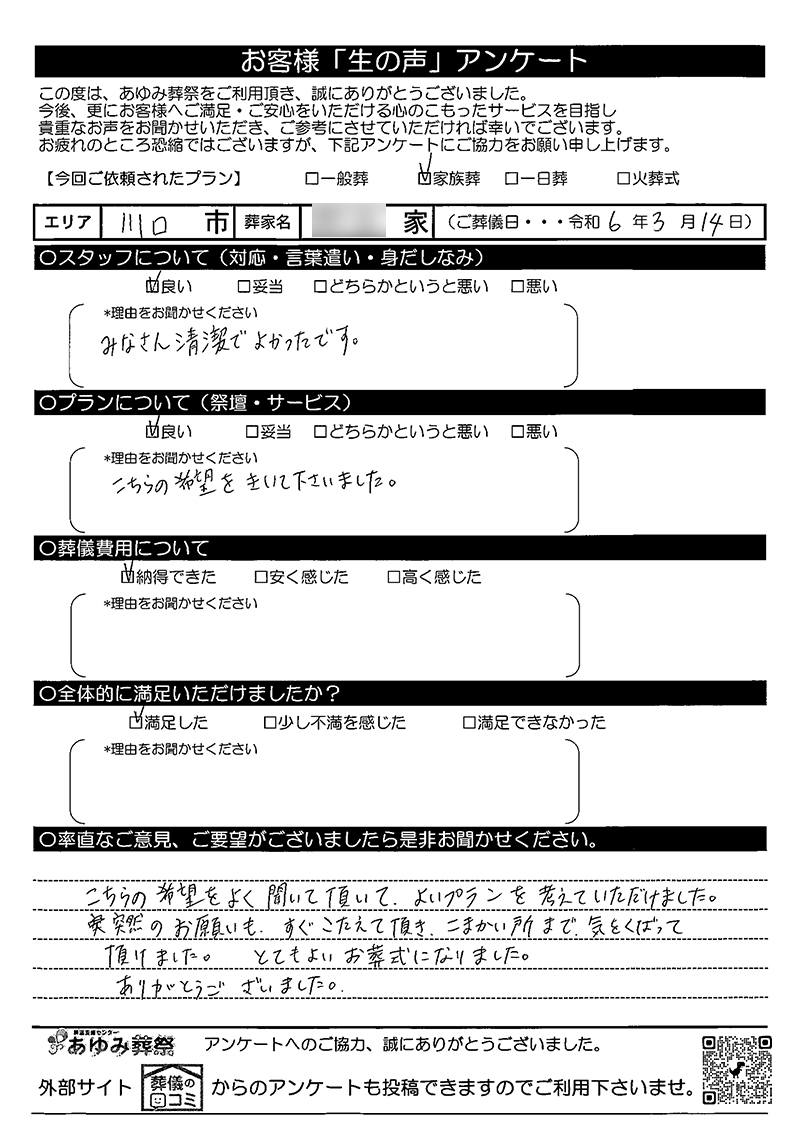 お客様「生の声」アンケート
この度は、あゆみ葬祭をご利用頂き、誠にありがとうございました。
今後、更にお客様へご満足・ご安心をいただける心のこもったサービスを目指し
貴重なお声をお聞かせいただき、ご参考にさせていただければ幸いでございます。
お疲れのところ恐縮ではございますが、下記アンケートにご協力をお願い申し上げます。
【今回ご依頼されたプラン】 □一般葬 ☑家族葬 □一日葬 □火葬式
エリア 川口 市 葬家名 家 (ご葬儀日・・・令和 6 年 3 月 14 日)
○スタッフについて(対応・言葉遣い・身だしなみ)
☑良い □妥当 □どちらかというと悪い □悪い
*理由をお聞かせください
みなさん清潔でよかったです。
○プランについて(祭壇・サービス)
☑良い □妥当 □どちらかというと悪い □悪い
*理由をお聞かせください
こちらの希望を きいて下さいました。
○葬儀費用について
☑納得できた □安く感じた □高く感じた
*理由をお聞かせください
○全体的に満足いただけましたか?
☑満足した □少し不満を感じた □満足できなかった
*理由をお聞かせください
○率直なご意見、ご要望がございましたら是非お聞かせください。
こちらの希望をよく聞いて頂いて、よいプランを考えていただけました。
突然のお願いも、すぐこたえて頂き、こまかい所まで、気をくばって
頂けました。 とてもよいお葬式になりました。
ありがとうございました。
葬送支援センター
あゆみ葬祭 アンケートへのご協力、誠にありがとうございました。
外部サイト 葬儀の口コミ からのアンケートも投稿できますのでご利用下さいませ。